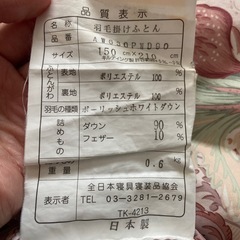 品質表示
名称 羽毛掛けふとん
品番
サイズ 150cm×210cm
ふとんがわ 表地 ポリエステル 100%
裏地 ポリエステル 100%
羽毛の種類 ポーリッシュホワイトダウン
詰めもの ダウン 90%
フェザー 10%
重量 0.6kg
表示者 全日本寝具寝装品協会
TEL 03-3281-2679
TK-4213
日本製